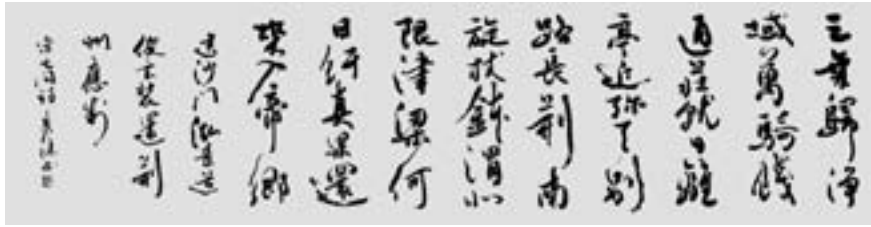 三乘歸淨
域萬騎餞
通莊就日離
亭近彌天別
路長荊南
旋杖鉢渭北
限津梁何
日紆真果還
來入帝鄉
送沙門泓景道
俊玄奘還荊
州應制
宋之問詩